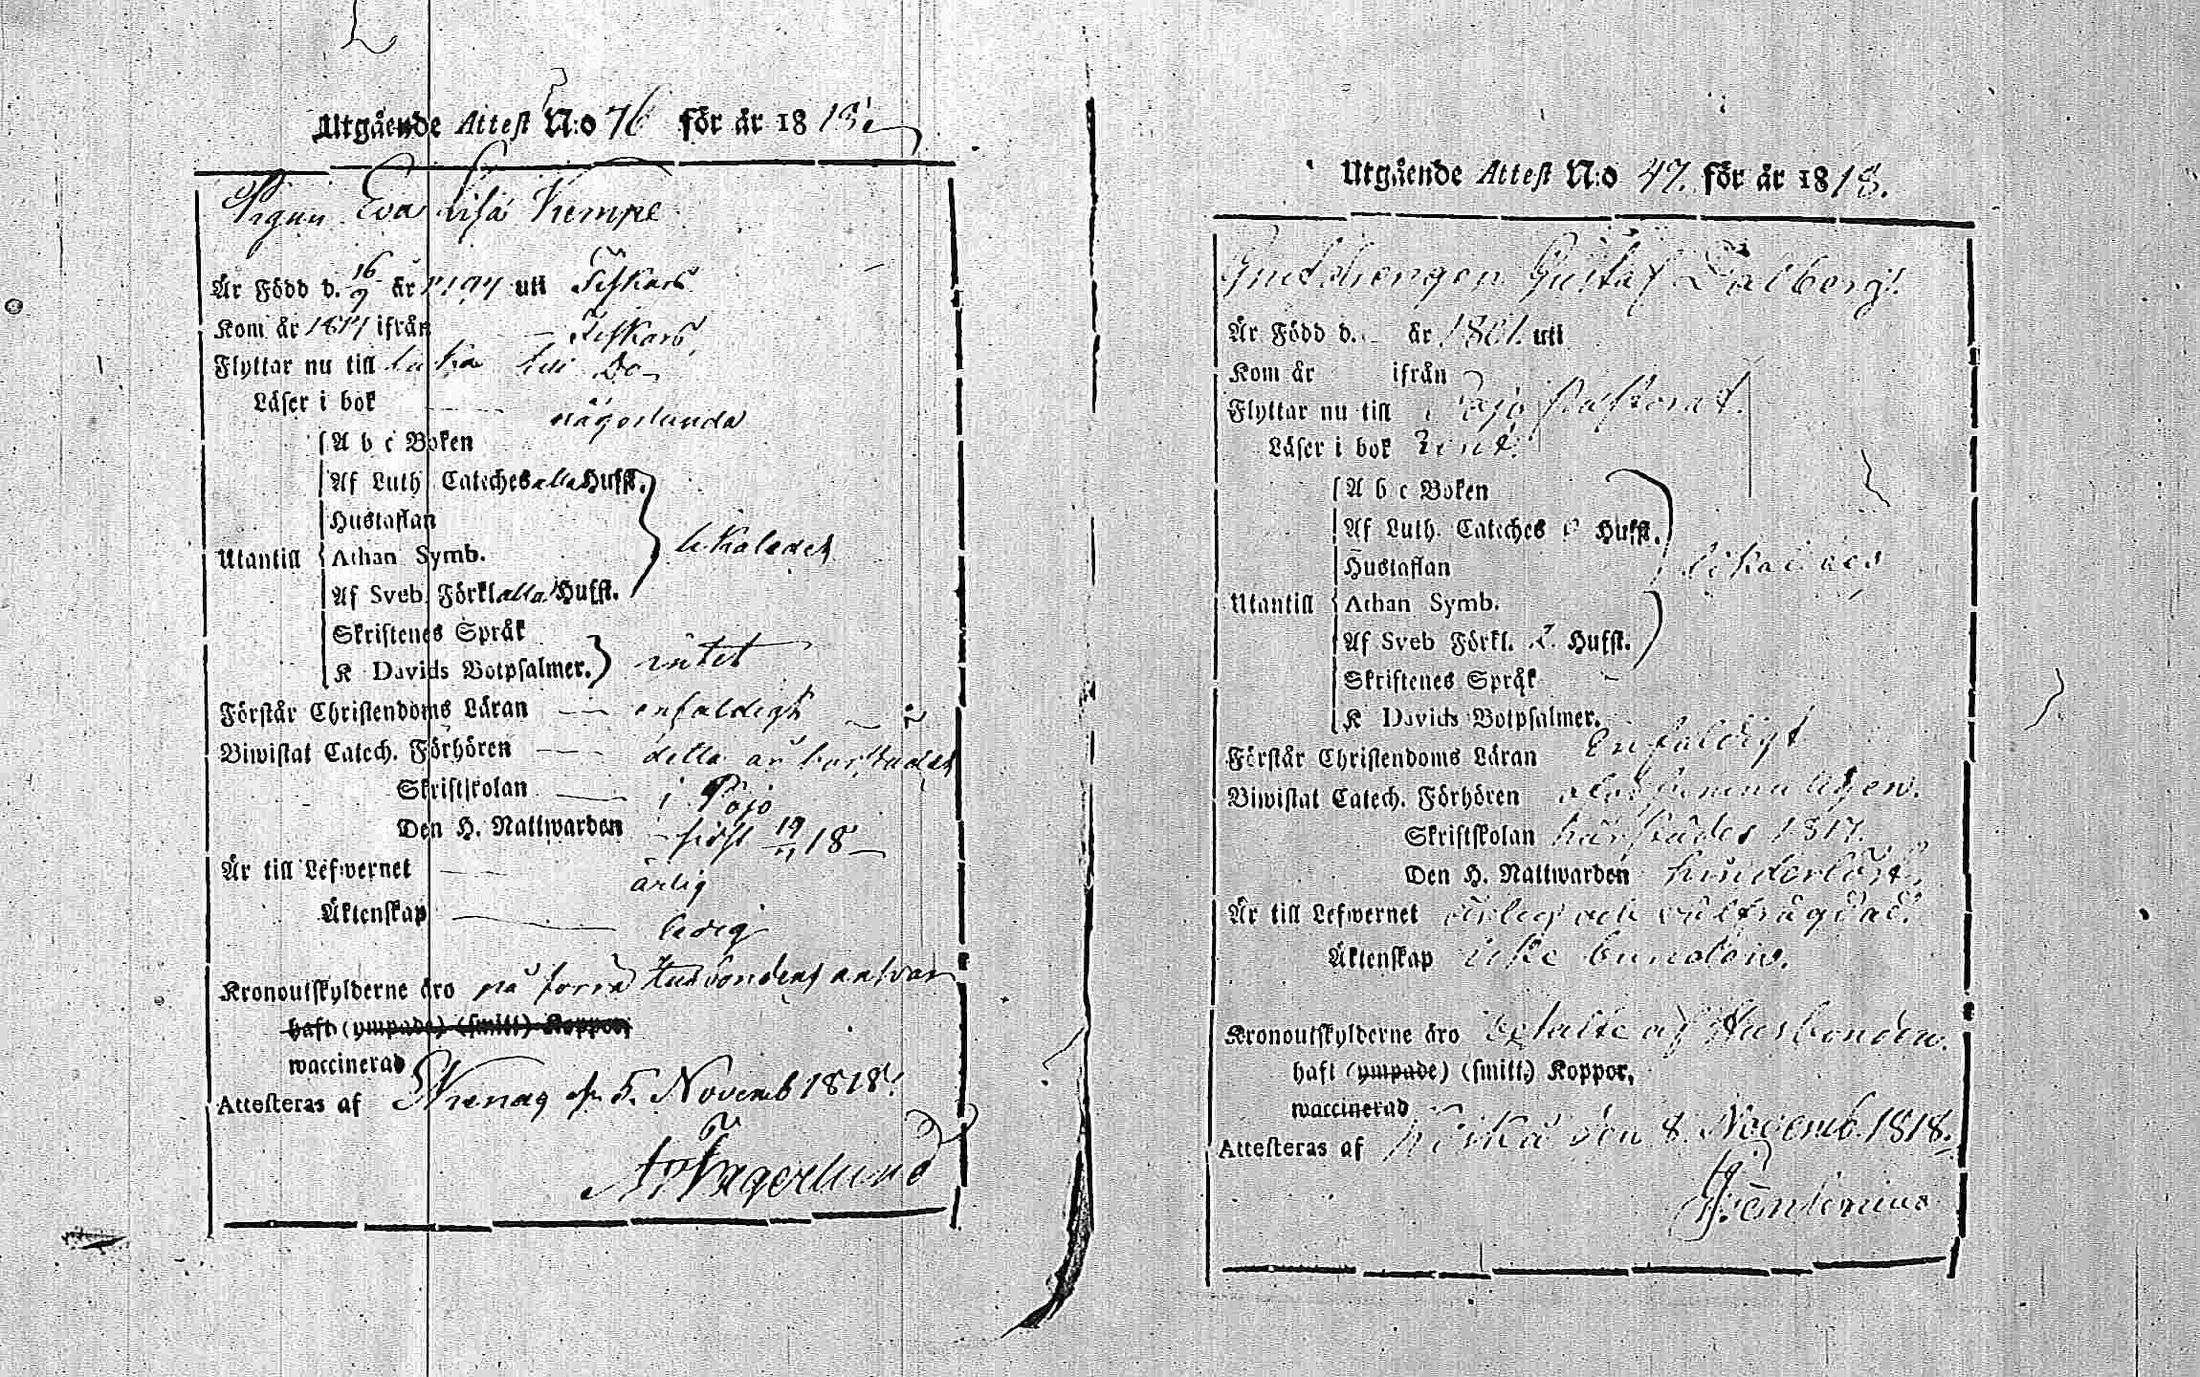 Utgående Attest N:o 76 för år 1818
Pigan Eva Lisa Kempe
Är Född d. 16/9 år 1797 uti Fiskars
Kom år 1817 ifrån Fiskars
Flyttar nu till D:o
Läser i bok någorlunda
A b c Boken
Af Luth Cateches alla Hufst.
Hustaflan
Utantill Athan Symb. likaledes
Af Sveb. Förkl alla Hufst.
Skriftenes Språk
K Davids Botpsalmer. intet
Förstår Christendoms Läran enfaldigt
Biwistat Catech. Förhören detta år härstädes
Skriftskolan i Pojo
Den H. Nattwarden sist 18
Är till Lefwernet ärlig
Äktenskap ledig
Kronoutskylderne äro på förra Husbondens answar
haft (ympade) (smitt) Koppor,
waccinerad
Attesteras af d. 5. Novemb 1818.
Fagerlund
Utgående Attest N:o 47. för år 1818.
Gustaf Dalberg.
Är Född d. år 1801. uti
Kom år ifrån
Flyttar nu till Pojo Pastorat.
Läser i bok rent.
A b c Boken
Af Luth. Cateches Hufst.
Hustaflan likaledes
Utantill Athan Symb.
Af Sveb Förkl. 2. Hufst.
Skriftenes Språk
K Davids Botpsalmer.
Förstår Christendoms Läran Enfaldigt
Biwistat Catech. Förhören
Skriftskolan härstädes 1817.
Den H. Nattwarden hinderlöst.
Är till Lefwernet ärlig och välfrägdad.
Äktenskap icke bunden.
Kronoutskylderne äro betalte af Husbonden.
haft (ympade) (smitt.) Koppor,
waccinerad
Attesteras af den 8. Novemb. 1818.